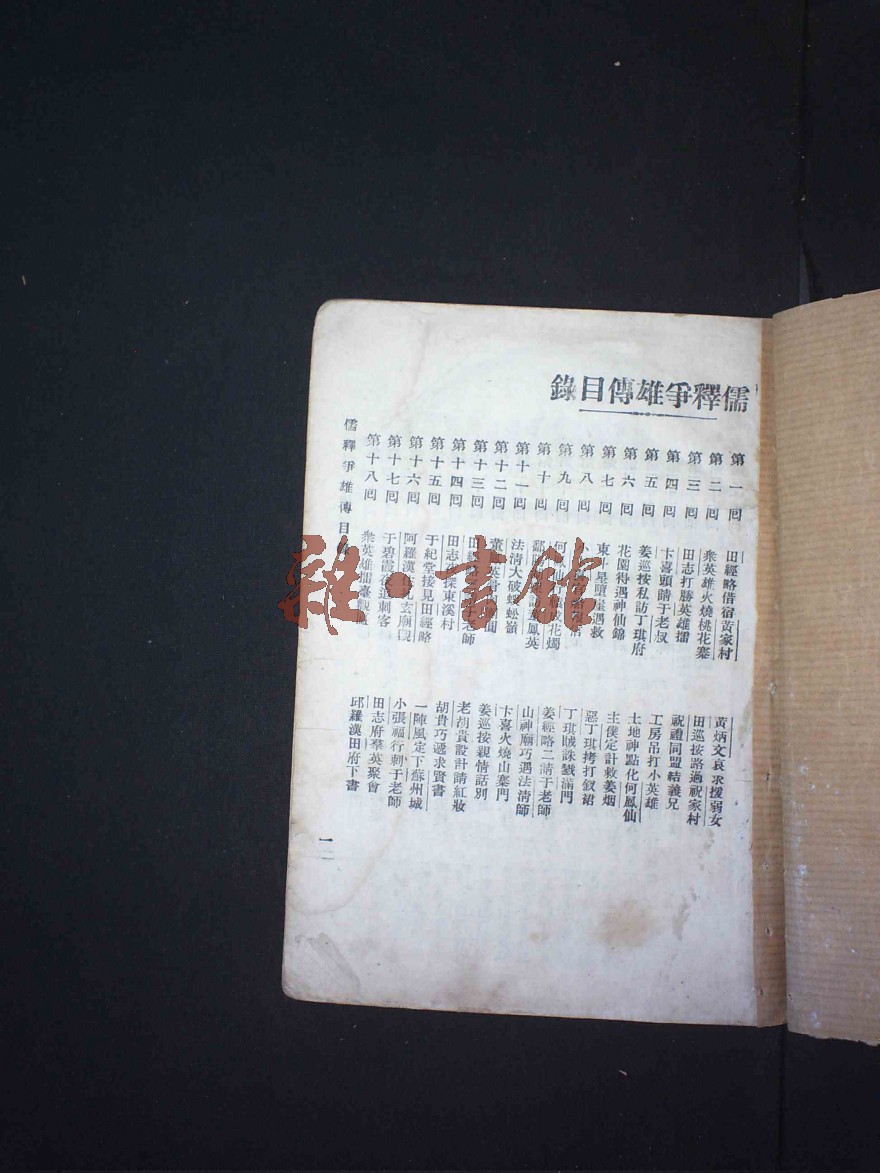 儒釋爭雄傳目錄
第一回 田經略借宿黃家村 黃炳文哀求援弱女
第二回 衆英雄火燒桃花寨 田巡按路過祝家村
第三回 田志打勝英雄擂 祝禮同盟結義兄
第四回 卞喜頭請于老叔 工房吊打小英雄
第五回 姜巡按私訪丁琪府 土地神點化何鳳仙
第六回 花園待遇神仙錦 主僕定計救姜烟
第七回 東斗星頭 遇救 惡丁琪拷打釵裙
第八回 丁琪賊誅戮滿門
第九回 何 花燭 姜經略二請于老師
第十回 鳳英 山神廟巧遇法清師
第十一回 法清大破蜈蚣嶺 卞喜火燒山寨門
第十二回 英 姜巡按親情話別
第十三回 田經 于老師 老胡貴設計請紅妝
第十四回 田志 探東溪村 胡貴巧遞求賢書
第十五回 于紀堂接見田經略 一陣風定下蘇州城
第十六回 阿羅漢 玄廟觀 小張福行刺于老師
第十七回 于碧霞 追刺客 田志府羣英聚會
第十八回 衆英雄擂臺觀 邱羅漢田府下書
儒釋爭雄傳目
一
雜·書館